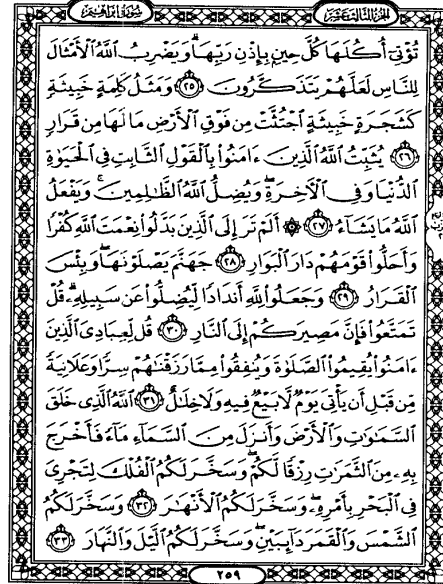 الجزء الثالث عشر
سورة إبراهيم
تُؤْتِىٓ أُكُلَهَا كُلَّ حِينِۭ بِإِذْنِ رَبِّهَا ۗ وَيَضْرِبُ ٱللَّهُ ٱلْأَمْثَالَ
لِلنَّاسِ لَعَلَّهُمْ يَتَذَكَّرُونَ ٢٥ وَمَثَلُ كَلِمَةٍ خَبِيثَةٍ
كَشَجَرَةٍ خَبِيثَةٍ ٱجْتُثَّتْ مِن فَوْقِ ٱلْأَرْضِ مَا لَهَا مِن قَرَارٍ
٢٦ يُثَبِّتُ ٱللَّهُ ٱلَّذِينَ ءَامَنُوا۟ بِٱلْقَوْلِ ٱلثَّابِتِ فِى ٱلْحَيَوٰةِ
ٱلدُّنْيَا وَفِى ٱلْءَاخِرَةِ ۖ وَيُضِلُّ ٱللَّهُ ٱلظَّـٰلِمِينَ ۚ وَيَفْعَلُ
ٱللَّهُ مَا يَشَآءُ ٢٧ ۞ أَلَمْ تَرَ إِلَى ٱلَّذِينَ بَدَّلُوا۟ نِعْمَتَ ٱللَّهِ كُفْرًا
وَأَحَلُّوا۟ قَوْمَهُمْ دَارَ ٱلْبَوَارِ ٢٨ جَهَنَّمَ يَصْلَوْنَهَا ۖ وَبِئْسَ
ٱلْقَرَارُ ٢٩ وَجَعَلُوا۟ لِلَّهِ أَندَادًا لِّيُضِلُّوا۟ عَن سَبِيلِهِۦ ۗ قُلْ
تَمَتَّعُوا۟ فَإِنَّ مَصِيرَكُمْ إِلَى ٱلنَّارِ ٣٠ قُل لِّعِبَادِىَ ٱلَّذِينَ
ءَامَنُوا۟ يُقِيمُوا۟ ٱلصَّلَوٰةَ وَيُنفِقُوا۟ مِمَّا رَزَقْنَـٰهُمْ سِرًّا وَعَلَانِيَةً
مِّن قَبْلِ أَن يَأْتِىَ يَوْمٌ لَّا بَيْعٌ فِيهِ وَلَا خِلَـٰلٌ ٣١ ٱللَّهُ ٱلَّذِى خَلَقَ
ٱلسَّمَـٰوَٰتِ وَٱلْأَرْضَ وَأَنزَلَ مِنَ ٱلسَّمَآءِ مَآءً فَأَخْرَجَ
بِهِۦ مِنَ ٱلثَّمَرَٰتِ رِزْقًا لَّكُمْ ۖ وَسَخَّرَ لَكُمُ ٱلْفُلْكَ لِتَجْرِىَ
فِى ٱلْبَحْرِ بِأَمْرِهِۦ ۖ وَسَخَّرَ لَكُمُ ٱلْأَنْهَـٰرَ ٣٢ وَسَخَّرَ لَكُمُ
ٱلشَّمْسَ وَٱلْقَمَرَ دَآئِبَيْنِ ۖ وَسَخَّرَ لَكُمُ ٱلَّيْلَ وَٱلنَّهَارَ ٣٣
٢٥٩